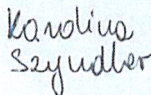 Karolina
Szyndler